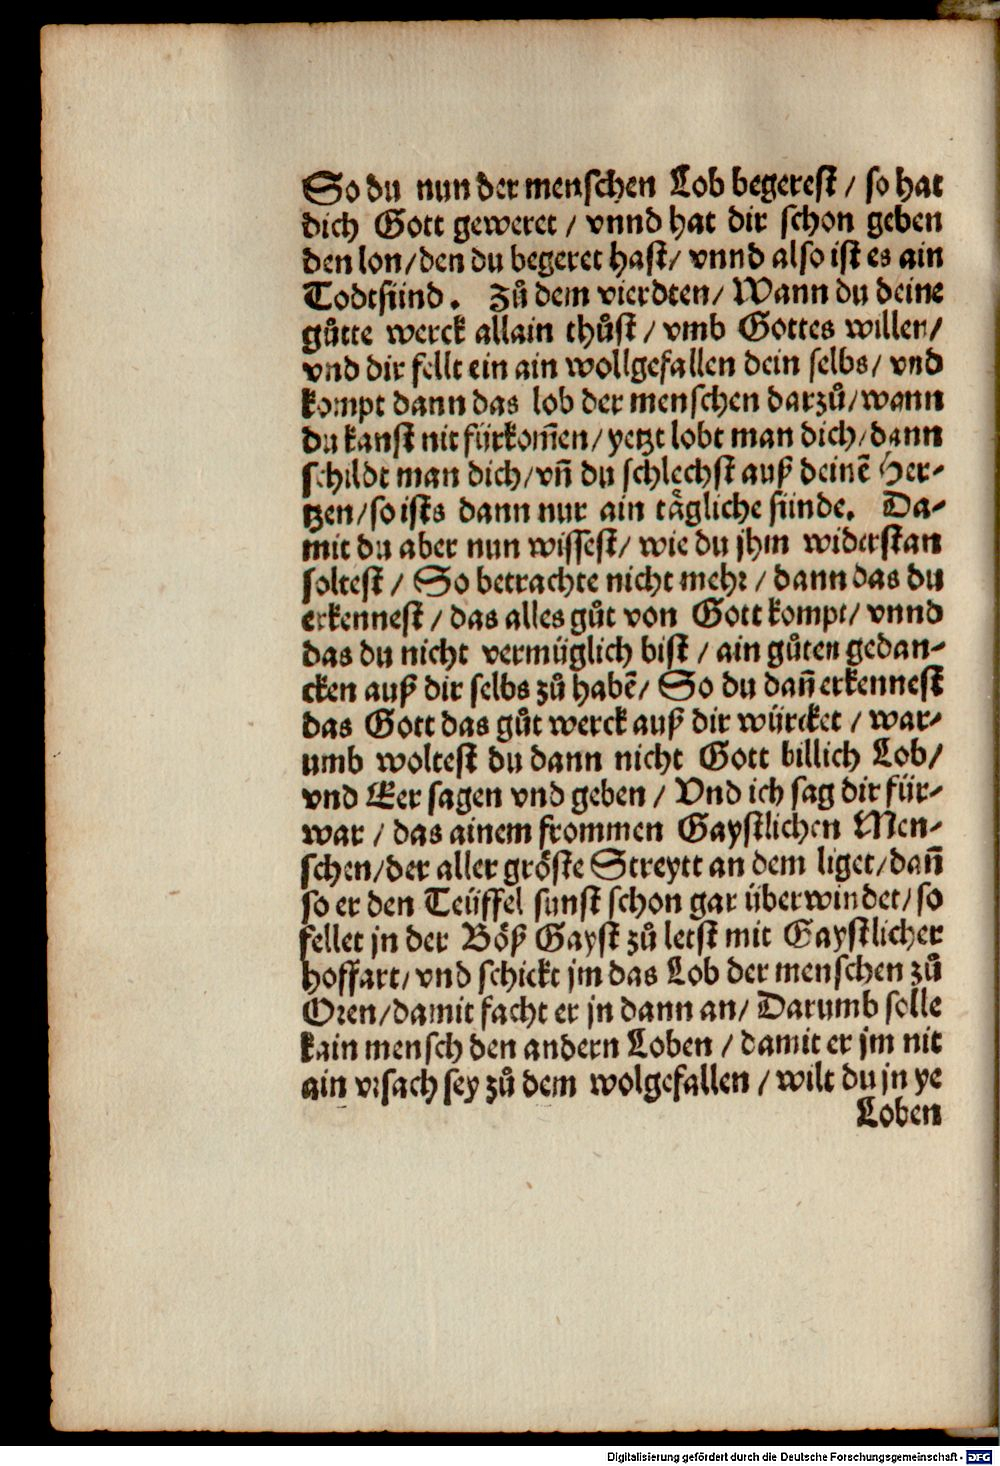 So du nun der menschen Lob begerest / so hat
dich Gott geweret / vnnd hat dir schon geben
den lon / den du begeret hast / vnnd also ist es ain
Todtsünd. Zů dem vierdten / Wann du deine
gůtte werck allain thůst / vmb Gottes willen /
vnd dir fellt ein ain wollgefallen dein selbs / vnd
kompt dann das lob der menschen darzů / wann
du kanst nit fürkom̃en / yetzt lobt man dich / dann
schildt man dich / vñ du schlechst auß deinẽ Her-
tzen / so ists dann nur ain tägliche sünde. Da-
mit du aber nun wissest / wie du jhm widerstan
soltest / So betrachte nicht mehr / dann das du
erkennest / das alles gůt von Gott kompt / vnnd
das du nicht vermüglich bist / ain gůten gedan-
cken auß dir selbs zů habẽ / So du dañ erkennest
das Gott das gůt werck auß dir würcket / war-
umb woltest du dann nicht Gott billich Lob /
vnd Eer sagen vnd geben / Vnd ich sag dir für-
war / das ainem frommen Gaystlichen Men-
schen / der aller gröste Streytt an dem liget / dañ
so er den Teüffel sunst schon gar überwindet / so
fellet jn der Böß Gayst zů letst mit Gaystlicher
hoffart / vnd schickt jm das Lob der menschen zů
Oren / damit facht er jn dann an / Darumb solle
kain mensch den andern Loben / damit er jm nit
ain vrsach sey zů dem wolgefallen / wilt du jn ye
Loben
Digitalisierung gefördert durch die Deutsche Forschungsgemeinschaft - DFG